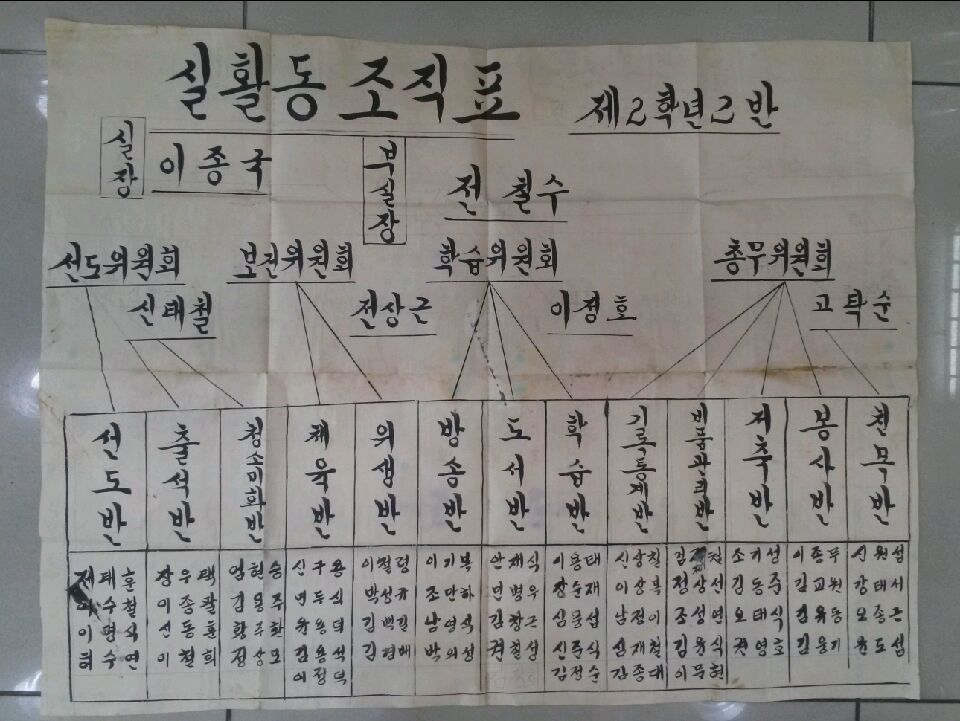 실활동 조직표
제2학년2반
실장 이종국
부실장 전철수
선도위원회 보건위원회 학습위원회 총무위원회
신태철 전상근 이정호 고탁순
선도반 출석반 청소미화반 체육반 위생반 방송반 도서반 학습반 기록통계반 비품관리반 저축반 봉사반 친목반
태훈 장우택 엄현승 신구용 이철령 이기복 안재식 이용태 신상철 조기성 이종무 신원섭
수철 이종팔 김용주 연두식 박성규 조만하 민병우 장순재 이상복 정상선 김동주 김교원 강태서
이면식 신동훈 황주환 윤용덕 김백길 남영식 김창근 심문섭 남정이 조성연 오태식 김유동 오종근
허수연 이철희 진상모 김용석 김평해 박의성 권철성 신주식 신재철 김윤식 권영호 김용기 윤도섭
이정덕 김정순 김종대 이무현